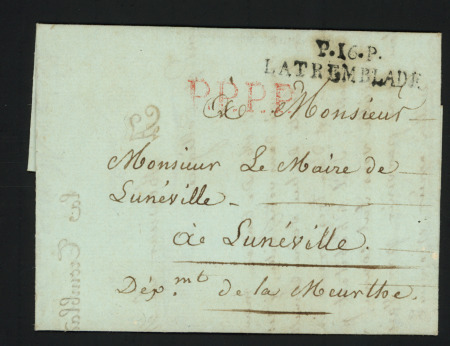 P.16.P.
LATREMBLADE
P.P.P.P.
A Monsieur
Monsieur Le Maire de
Lunéville
à Lunéville.
Dép.mt de la Meurthe.